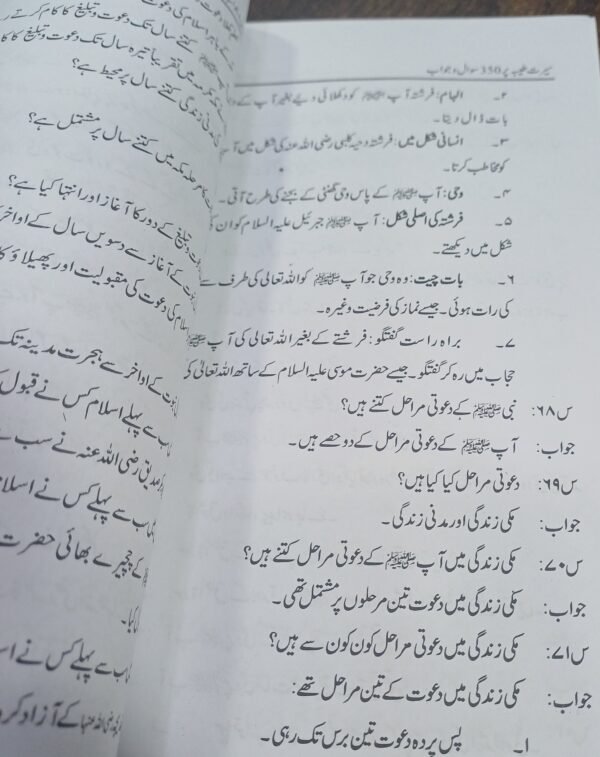 سیرت طیبہ پر 350 سوال و جواب
۲۔ الہام: فرشتہ آپ ﷺ کو دکھلائی دیے بغیر آپ کے
بات ڈال دیتا۔
۳۔ انسانی شکل میں: فرشتہ دحیہ کلبی رضی اللہ عنہ کی شکل میں آ
کو مخاطب کرتا۔
۴۔ وحی: آپ ﷺ کے پاس وحی گھنٹی کے بجنے کی طرح آتی۔
۵۔ فرشتہ کی اصلی شکل: آپ ﷺ جبرئیل علیہ السلام کو ان
شکل میں دیکھتے۔
۶۔ بات چیت: وہ وحی جو آپ ﷺ کو اللہ تعالی کی طرف سے
کی رات ہوئی۔ جیسے نماز کی فرضیت وغیرہ۔
۷۔ براہ راست گفتگو: فرشتے کے بغیر اللہ تعالی کی آپ ﷺ
حجاب میں رہ کر گفتگو۔ جیسے حضرت موسی علیہ السلام کے ساتھ اللہ تعالیٰ
س۶۸: نبی ﷺ کے دعوتی مراحل کتنے ہیں؟
جواب: آپ ﷺ کے دعوتی مراحل کے دو حصے ہیں۔
س۶۹: دعوتی مراحل کیا کیا ہیں؟
جواب: مکی زندگی اور مدنی زندگی۔
س۷۰: مکی زندگی میں آپ ﷺ کے دعوتی مراحل کتنے ہیں؟
جواب: مکی زندگی میں دعوت تین مرحلوں پر مشتمل تھی۔
س۷۱: مکی زندگی میں دعوتی مراحل کون کون سے ہیں؟
جواب: مکی زندگی میں دعوت کے تین مراحل تھے:
۱۔ پس پردہ دعوت تین برس تک رہی۔
کتنے سال تک دعوت و تبلیغ کا کام کرتے
میں تقریبا تیرہ سال تک دعوت و تبلیغ کا کا
زندگی کتنے سال پر محیط ہے؟
میں کتنے سال پر مشتمل ہے؟
تبلیغ کے دور کا آغاز اور انتہا کیا ہے؟
کے آغاز سے دسویں سال کے اواخر
کی دعوت کی مقبولیت اور پھیلاؤ کا
کے اواخر سے ہجرت مدینہ تک
سب سے پہلے اسلام کس نے قبول
صدیق رضی اللہ عنہ نے سب سے
سب سے پہلے کس نے اسلا
کے چچیرے بھائی حضرت
کیا۔
سب سے پہلے کس نے اس
رضی اللہ عنہا کے آزاد کر